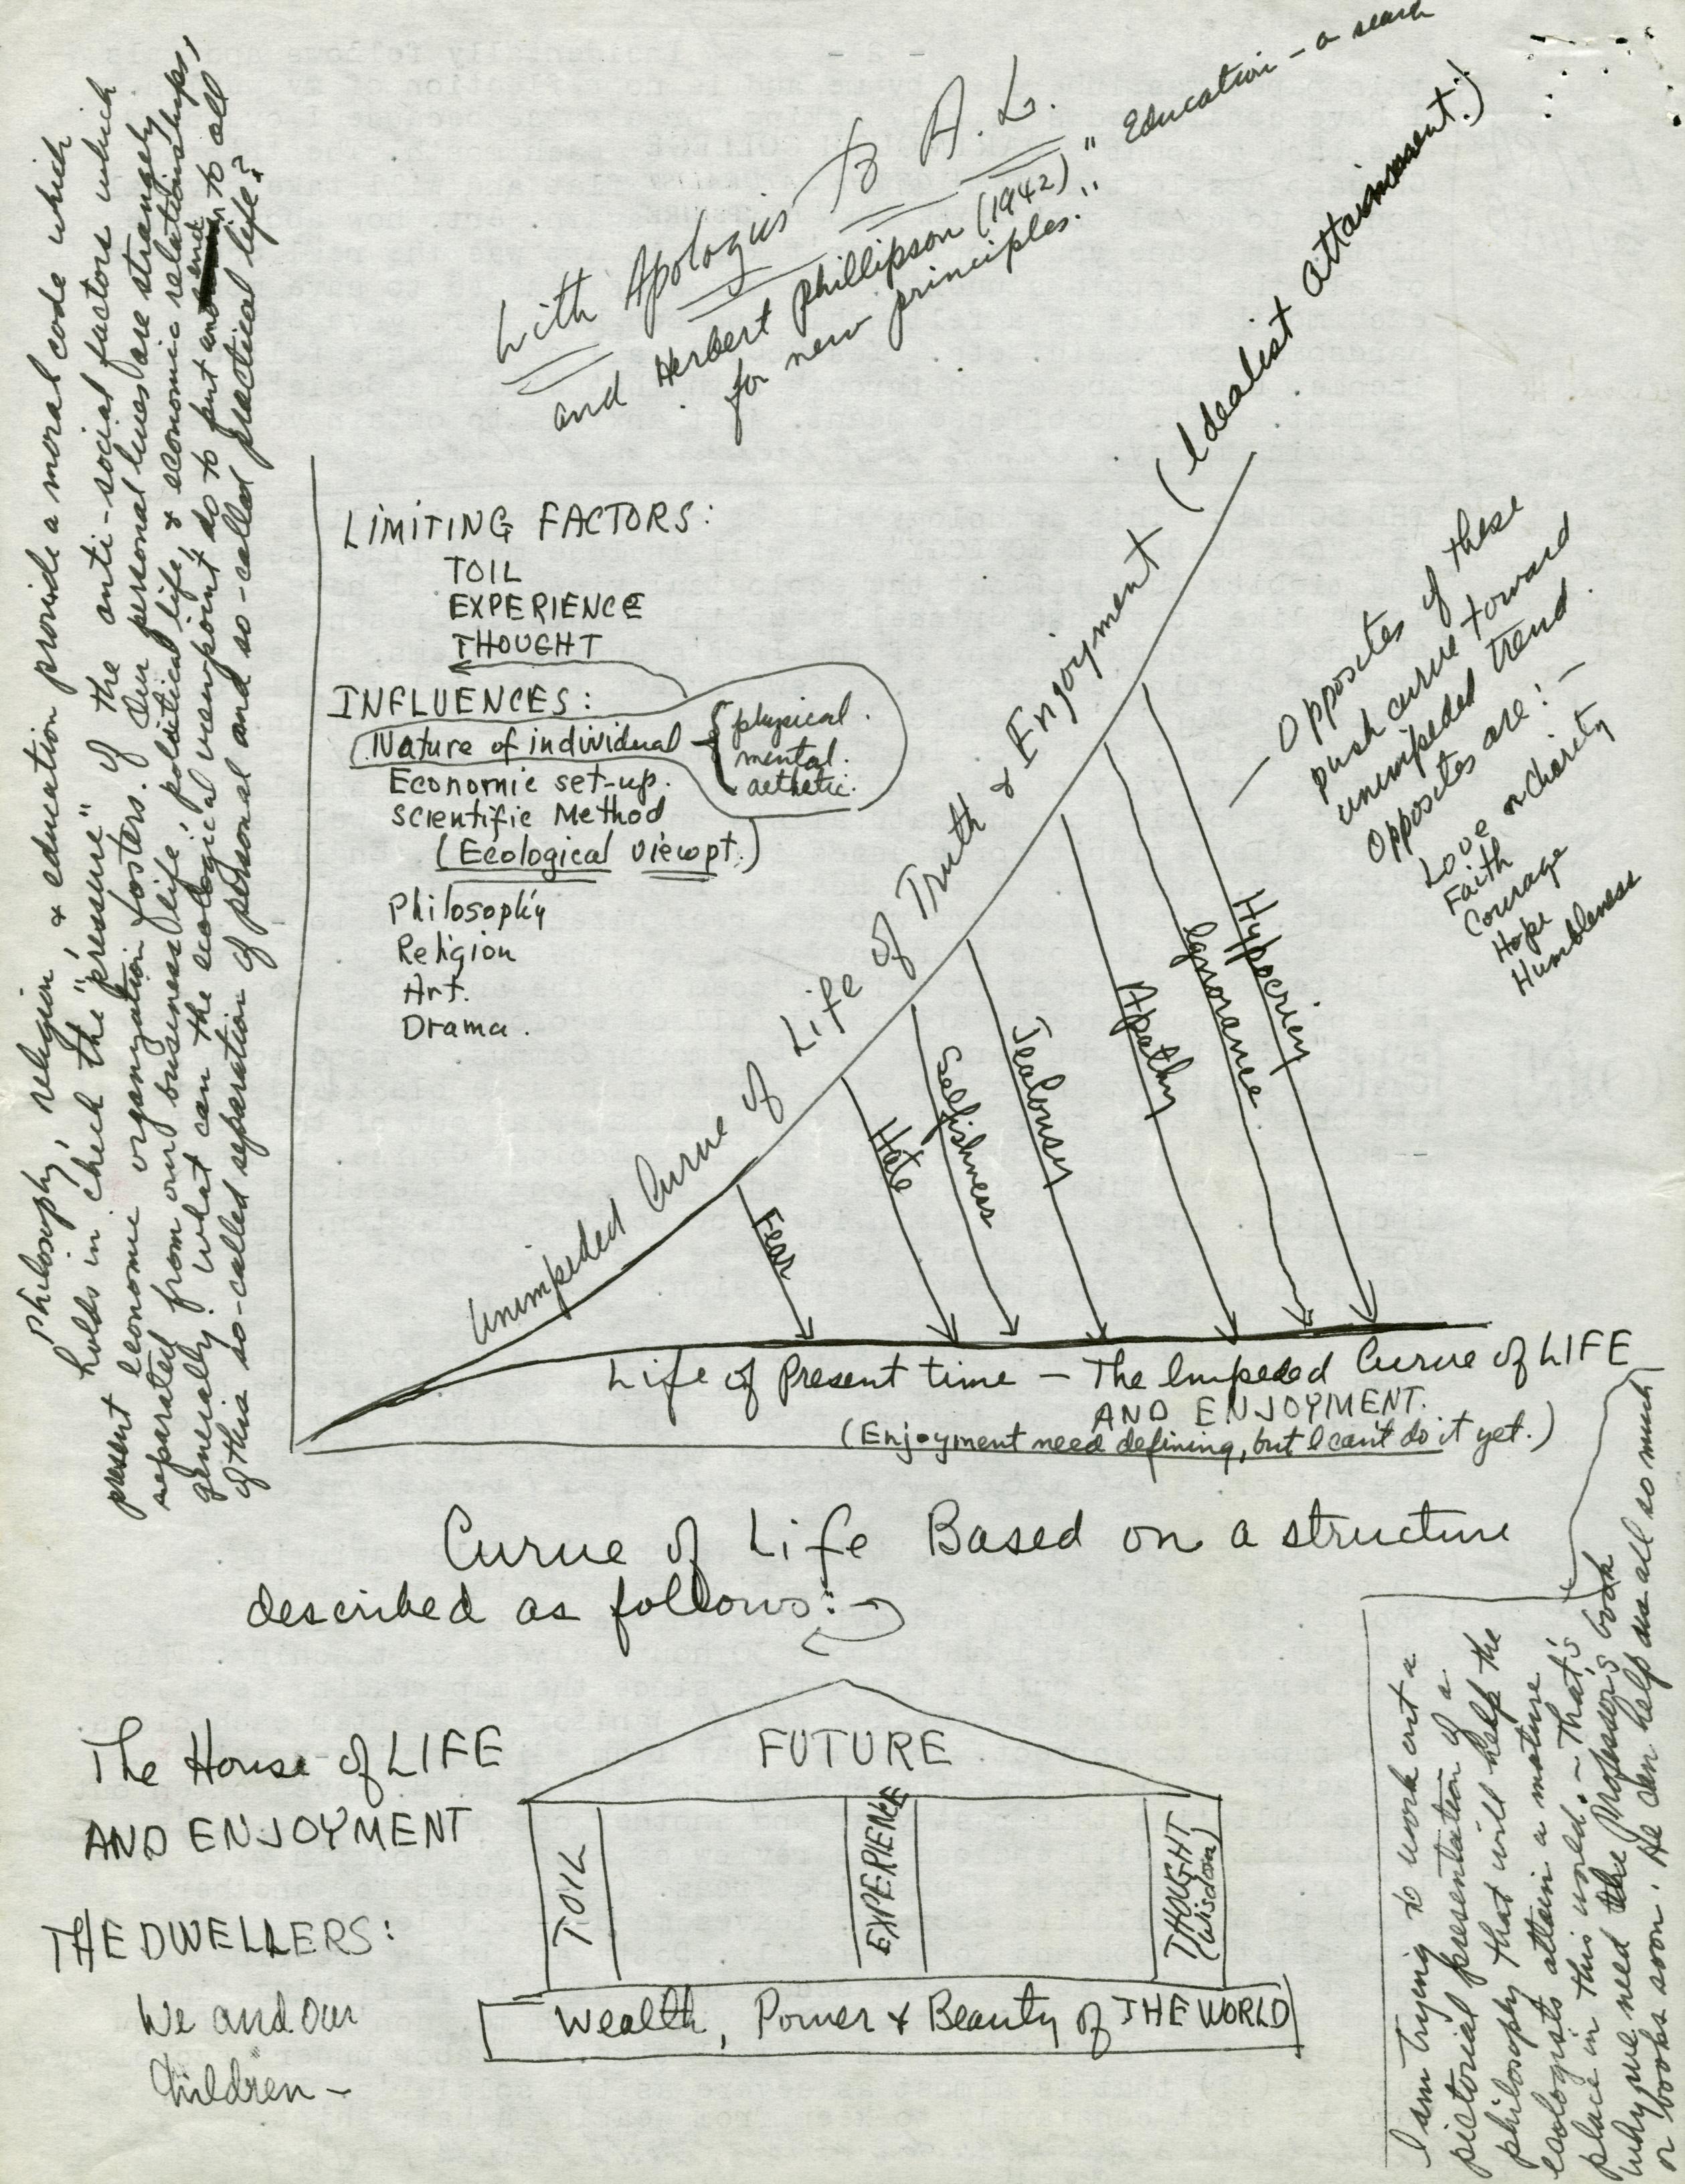 With Apologies to A. L.
and Herbert Phillipson (1942) " Education - a search
for new principles."
Philosophy, religion, & education provide a moral code which
holds in check the "pressure" of the anti-social factors which
present economic organization fosters. Our personal lives are strangely
separated from our business life, political life, & economic relationships,
generally. What can the ecological viewpoint do to put an end to all
of this so-called separation of personal and so-called practical life?
LIMITING FACTORS:
TOIL
EXPERIENCE
THOUGHT
INFLUENCES:
Nature of individual - { physical.
mental.
aethetic.
Economic set-up.
Scientific Method
(Ecological viewpt.)
Philosophy
Religion
Art.
Drama.
Unimpeded Curve of Life of Truth & Enjoyment (Idealist attainment!)
— Opposites of these
push curve toward
unimpeded trend.
Opposites are: -
Love or Charity
Faith
Courage
Hope
Humbleness
Fear
Hate
Selfishness
Jealousy
Apathy
Ignorance
Hypocricy
Life of Present time — The Impeded Curve of LIFE
AND ENJOYMENT.
(Enjoyment need defining, but I can't do it yet.)
Curve of Life Based on a structure
described as follows:
The House of LIFE
AND ENJOYMENT
THE DWELLERS:
We and our
Children -
FUTURE
TOIL
EXPERIENCE
THOUGHT
(wisdom)
Wealth, Power & Beauty of THE WORLD
I am trying to work out a
pictorial presentation of a
philosophy that will help the
ecologists attain a mature
place in this world. - That's
why we need the Professor's book
or books soon. He can help us all so much